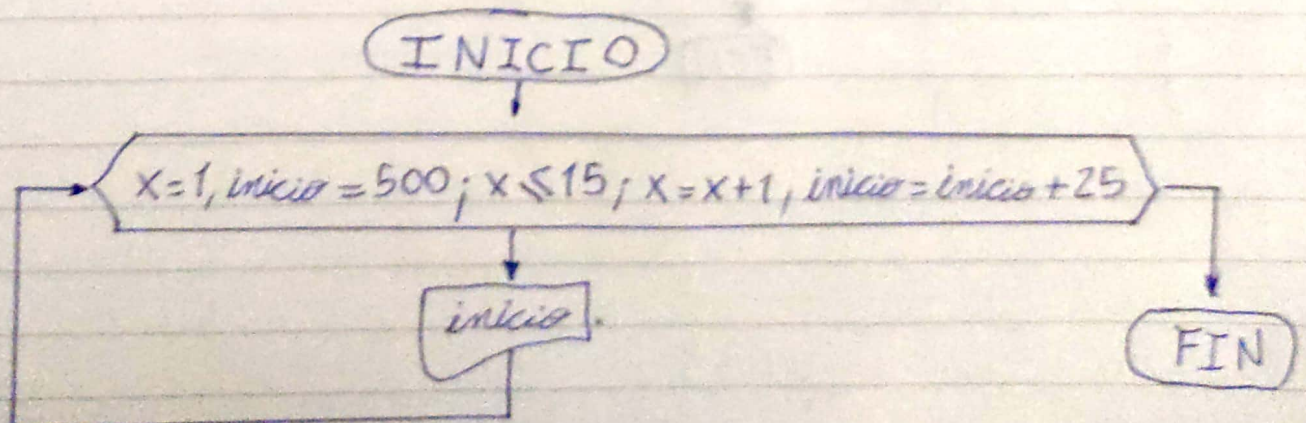 INICIO
x=1, inicio=500; x≤15; x=x+1, inicio=inicio+25
inicio.
FIN